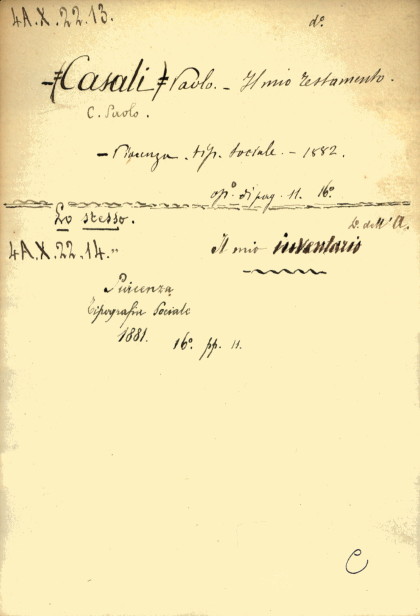 4A.X.22.13. d°.
-(Casali) Paolo. - Il mio testamento.
C. Paolo.
- Piacenza. tip. Sociale. - 1882.
op° di pag. 11. 16°
Lo stesso. D. dell'A.
4A.X.22.14." Il mio inventario
Piacenza
Tipografia Sociale
1881. 16° pp. 11.
C